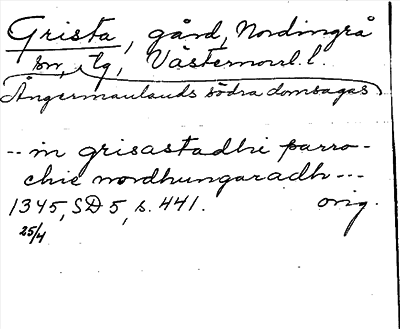 Grista, gård, Nordingrå
sn, tg, Västernorrl. l.
Ångermanlands södra domsagas
-- in grisastadhi parro-
chie nordhungaradh ---
1345, SD 5, s. 441. orig.
25/4